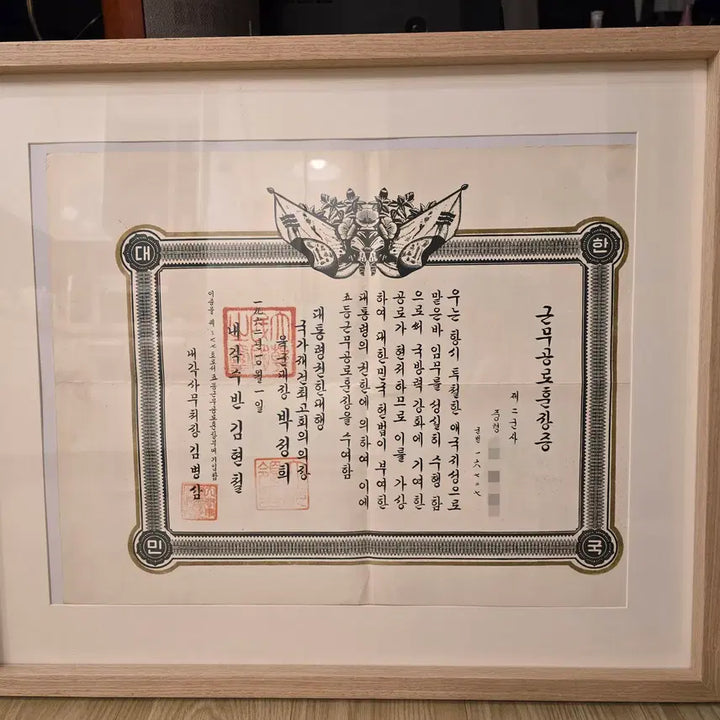 대
한
민
국
근무공로훈장증
제二군사
중령
군번 一六七二七
우는 항시 투철한 애국지성으로
맡은바 임무를 성실히 수행 함
으로써 국방력 강화에 기여한
공로가 현저하므로 이를 가상
하여 대한민국 헌법이 부여한
대통령의 권한에 의하여 이에
근무공로훈장을 수여함
대통령권한대행
국가재건최고회의의장
육군대장 박정희
一九六二年一〇월 一일
내각수반 김현철
내각사무처장 김병삼